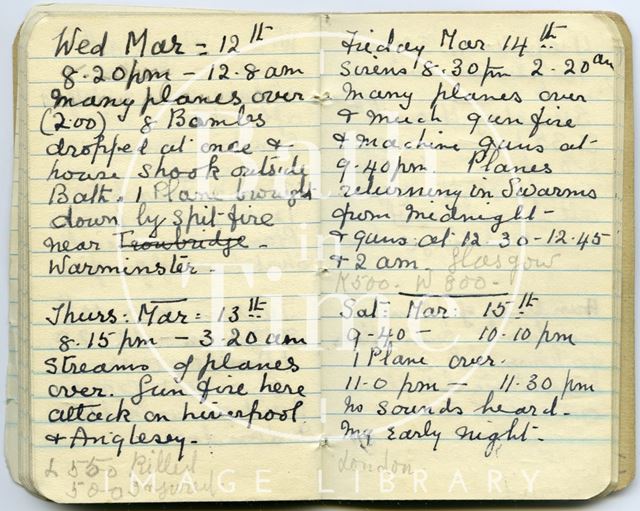 Wed Mar = 12th
8.20pm – 12.8am
Many planes over
(200) 8 Bombs
dropped at once &
house shook outside
Bath. 1 Plane brought
down by Spitfire
near Trowbridge -
Warminster -
Thurs: Mar: 13th
8.15 pm – 3.20 am
Streams of planes
over. Gun fire here
attack on Liverpool
& Anglesey -
500 Killed
500 Injured
Friday Mar 14th
Sirens 8.30pm 2.20am
Many planes over
& much gun fire
& machine guns at
9.40pm. Planes
returning in Swarms
from midnight -
& guns at 12.30-12.45
& 2 am. Glasgow
K500. W 800 -
Sat: Mar: 15th
9-40 - 10.10 pm
1 Plane over.
11.0 pm – 11.30 pm
No sounds heard -
My Early night -
London
Bath in Time
IMAGE LIBRARY